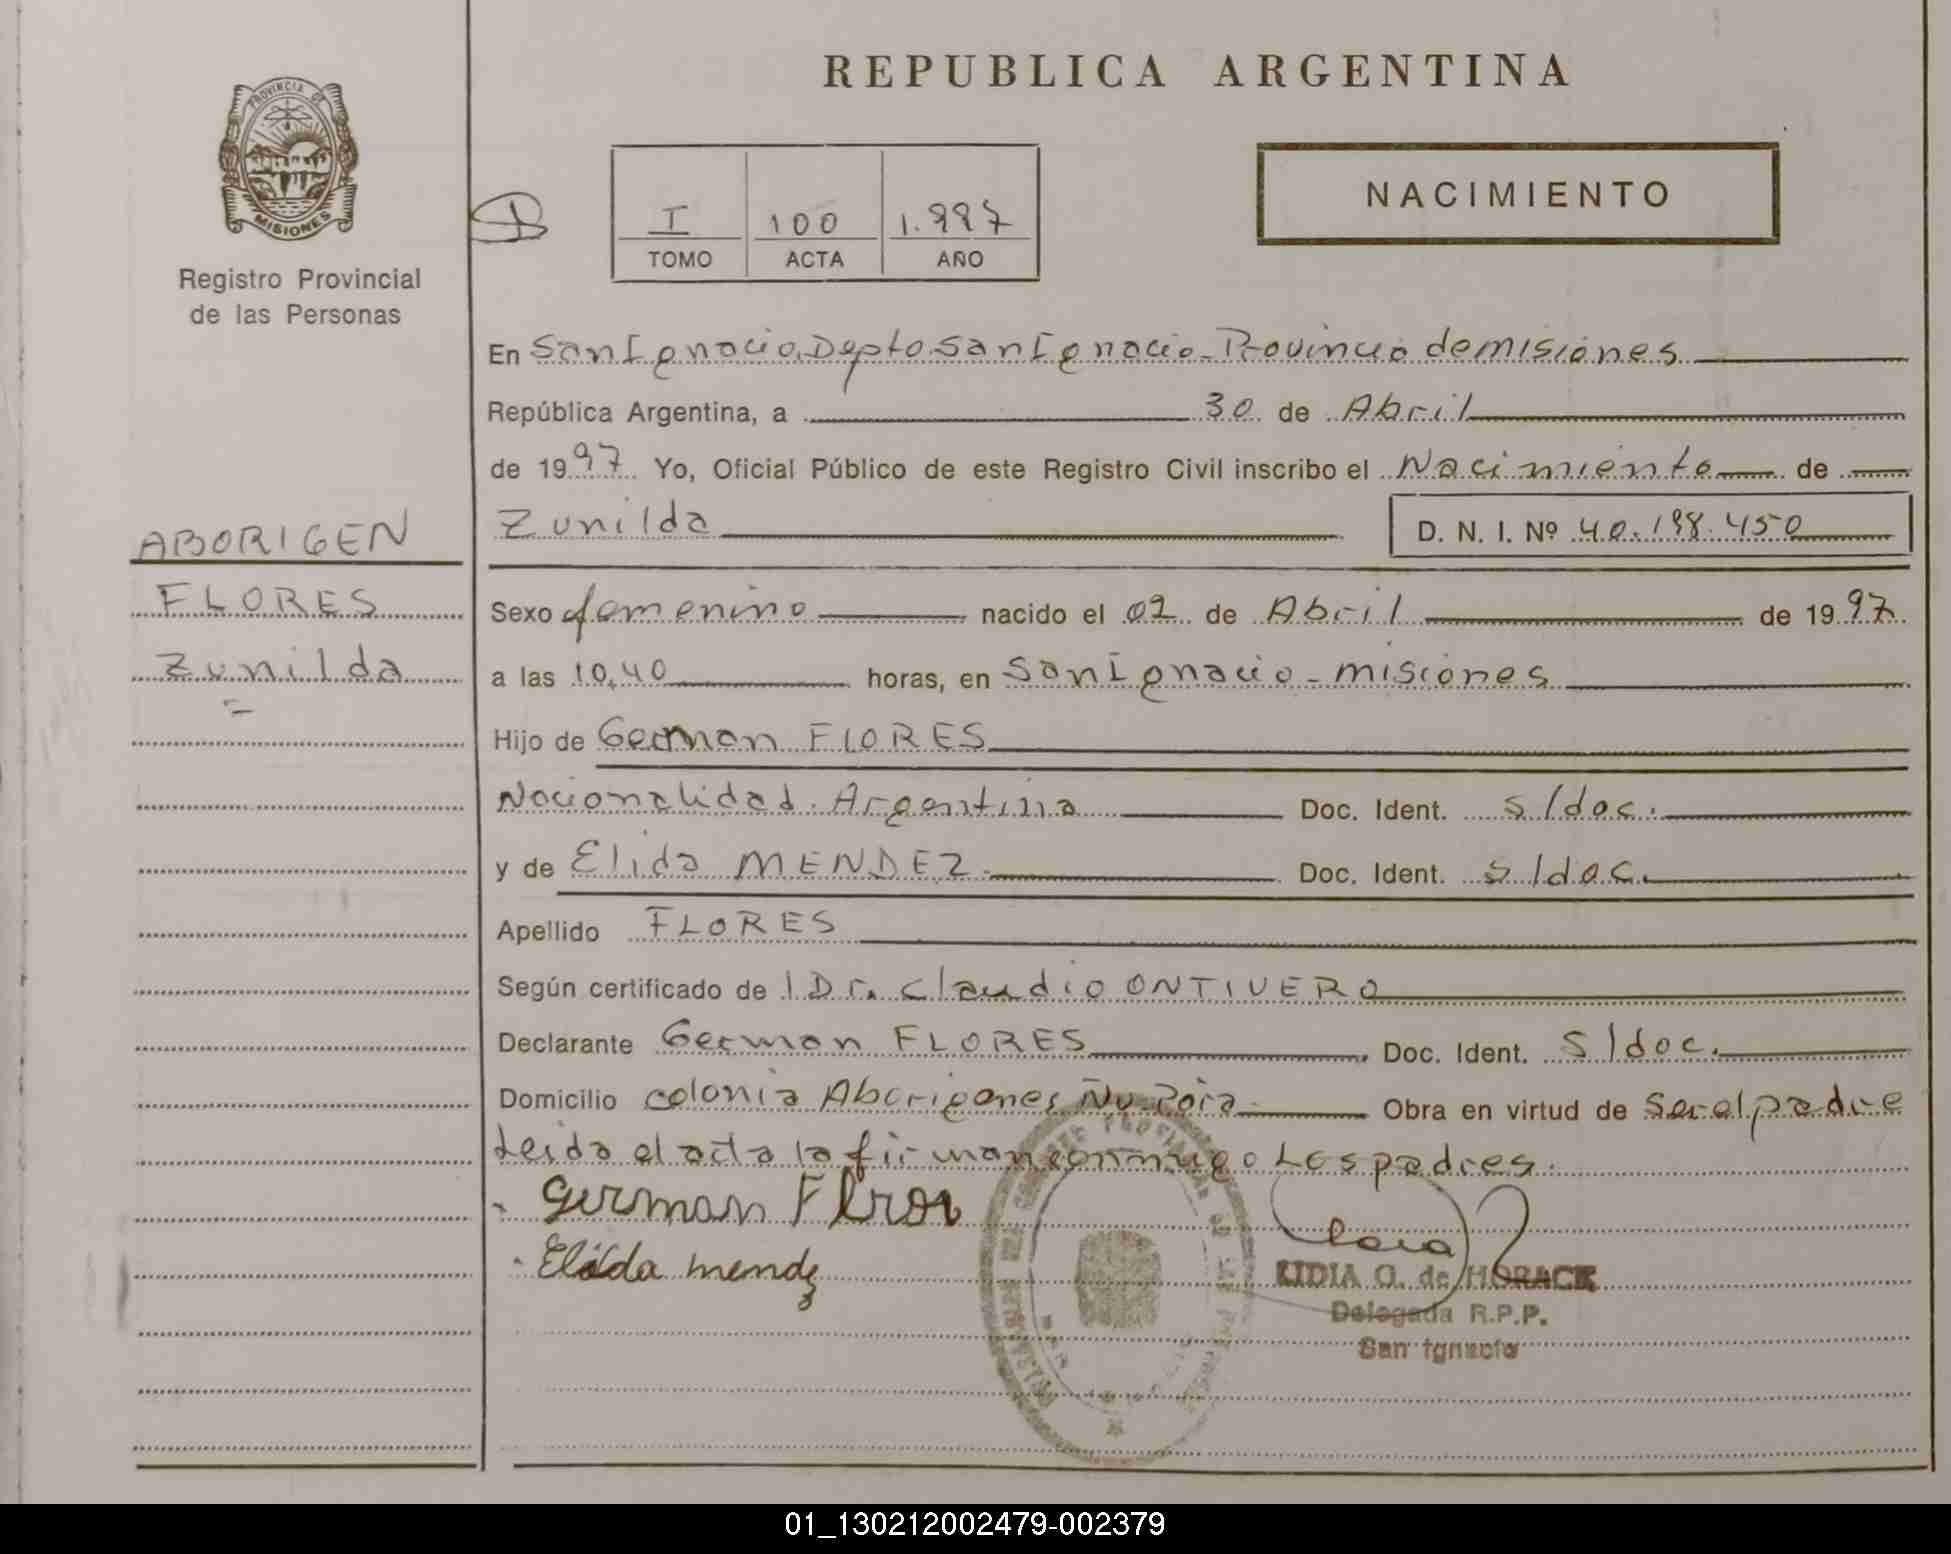 REPUBLICA ARGENTINA
PROVINCIA DE
MISIONES
Registro Provincial
de las Personas
I 100 1.997
TOMO ACTA AÑO
NACIMIENTO
En San Ignacio, Depto San Ignacio - Provincia de misiones
República Argentina, a 30 de Abril
de 1997 Yo, Oficial Público de este Registro Civil inscribo el Nacimiento de
Zunilda D. N. I. Nº 40.198.450
ABORIGEN
FLORES
Zunilda
Sexo femenino nacido el 02 de Abril de 1997
a las 10,40 horas, en San Ignacio - misiones
Hijo de German FLORES
Nacionalidad Argentina Doc. Ident. s/doc.
y de Elida MENDEZ Doc. Ident. s/doc.
Apellido FLORES
Según certificado de l Dr. Claudio ONTIVERO
Declarante German FLORES Doc. Ident. s/doc.
Domicilio colonia Aborigenes Ñu-Porá Obra en virtud de Ser el padre
Leida el acta la firman conmigo Los padres.
German
Elida mendz
LIDIA G. de HORACK
Delegada R.P.P.
San Ignacio
01_130212002479-002379